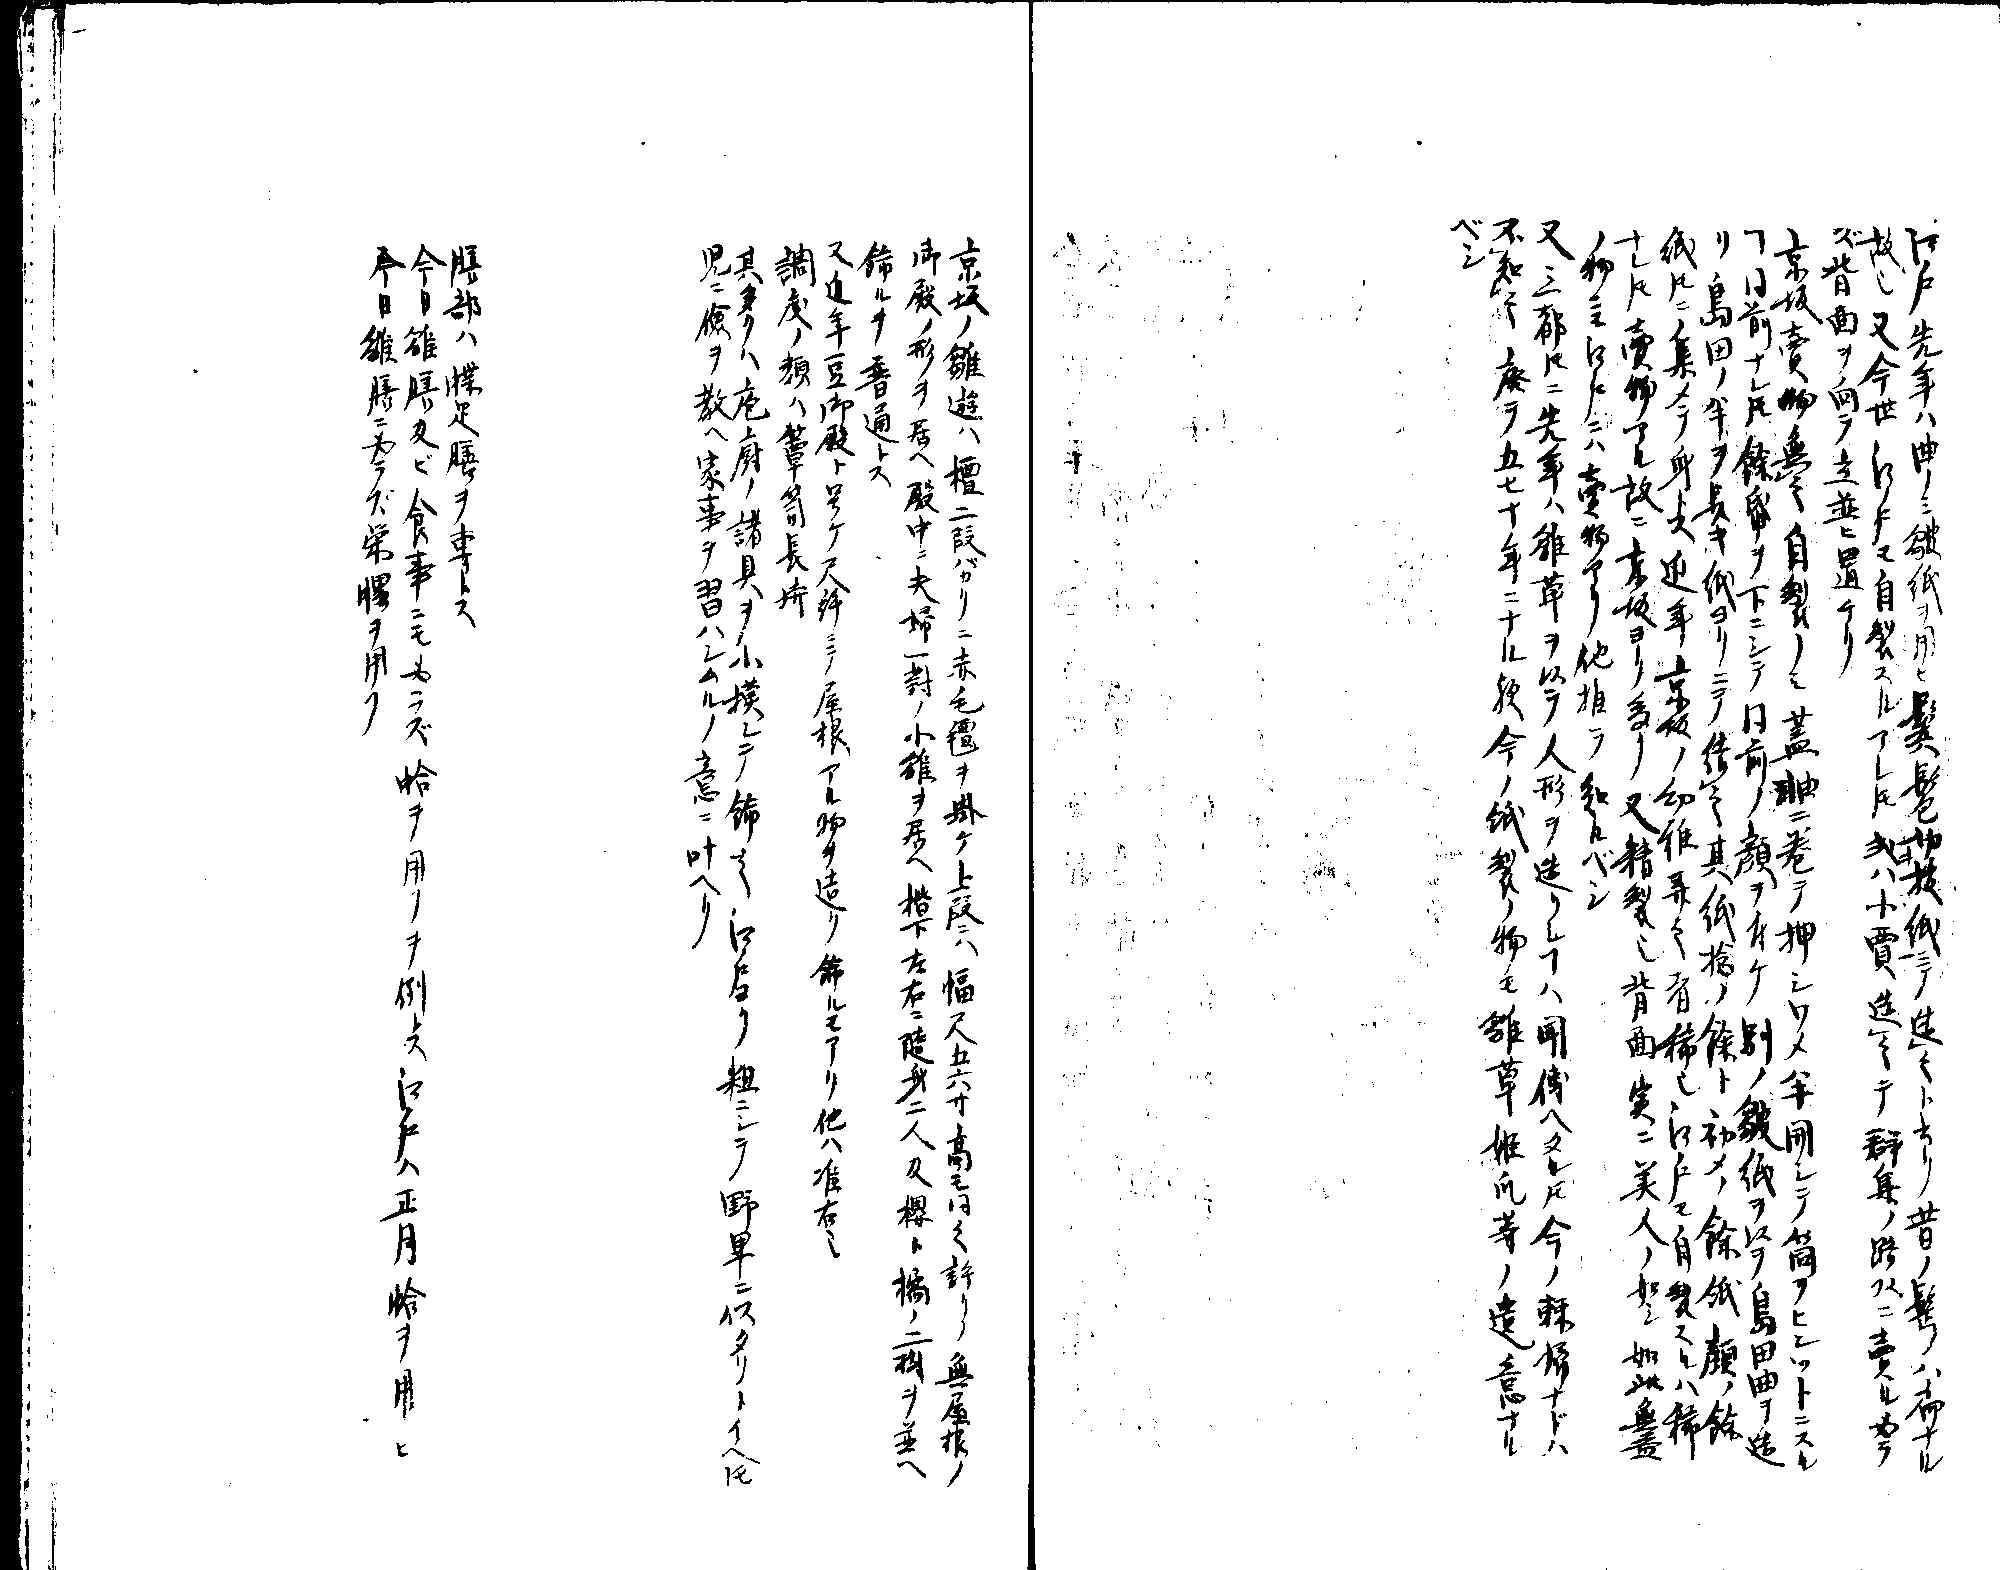 江戸先年ハ曲ノミ皺紙ヲ用ヒ鬢髱切抜紙ニテ造之トナリ昔ノ髷ノハ希ナル
故也又今世江戸ニモ自製スルアレドモ或ハ小賈造之テ群集ノ路次ニ売ル必ラ
ズ背面ヲ向テ立並ヒ置ケリ
京坂売物無之自製ノミ蓋軸ニ巻テ押シツメ半開シテ筒ヲヒシツトニスル
フ同前ナレドモ餘紙ヲ下ニシテ同前ノ顔ヲ付ケ別ノ皺紙ヲ以テ島田曲ヲ造
リ島田ノ半ヲ長キ紙ヨリニテ結之其紙捻ノ餘ト初メノ餘紙顔ノ餘
紙トモニ集メテ身トス近年京坂ノ幼稚弄之者稀也江戸モ自製スルハ稀
ナレドモ売物アル故ニ京坂ヨリ多リ又精製也背面実ニ美人ノ如シ如此無益
ノ物モ江戸ニハ売物アリ他推テ知ルベシ
又三都トモニ先年ハ雛草ヲ以テ人形ヲ造リシフハ聞傳ヘタレドモ今ノ嫁婦ナドハ
不知之廃テ五七十年ニナル歟今ノ紙製ノ物モ雛草姫瓜等ノ遺意ナル
ベシ
京坂ノ雛遊ハ檀二段バカリニ赤毛氈ヲ掛ケ上段ニハ幅尺五六寸高モ同之許リノ無屋根ノ
御殿ノ形ヲ居ヘ殿中ニ夫婦一対ノ小雛ヲ居ヘ楷下左右ニ随身二人及櫻ト橘ノ二樹ヲ並ヘ
飾ルヲ普通トス
又近年豆御殿ト号ケ尺許ニテ屋根アル物ヲ造リ飾ルモアリ他ハ准右也
調度ノ類ハ箪笥長持
其多クハ庖厨ノ諸具ヲ小模シテ飾之江戸ヨリ粗ニシテ野卑ニ似タリトイヘドモ
児ニ倹ヲ教ヘ家事ヲ習ハシムルノ意ニ叶ヘリ
膳部ハ蝶足膳ヲ専トス
今日雛膳及ビ食事ニモ必ラズ蛤ヲ用フヲ例トス江戸ハ正月蛤ヲ用ヒ
今日雛膳ニ必ラズ栄螺ヲ用フ